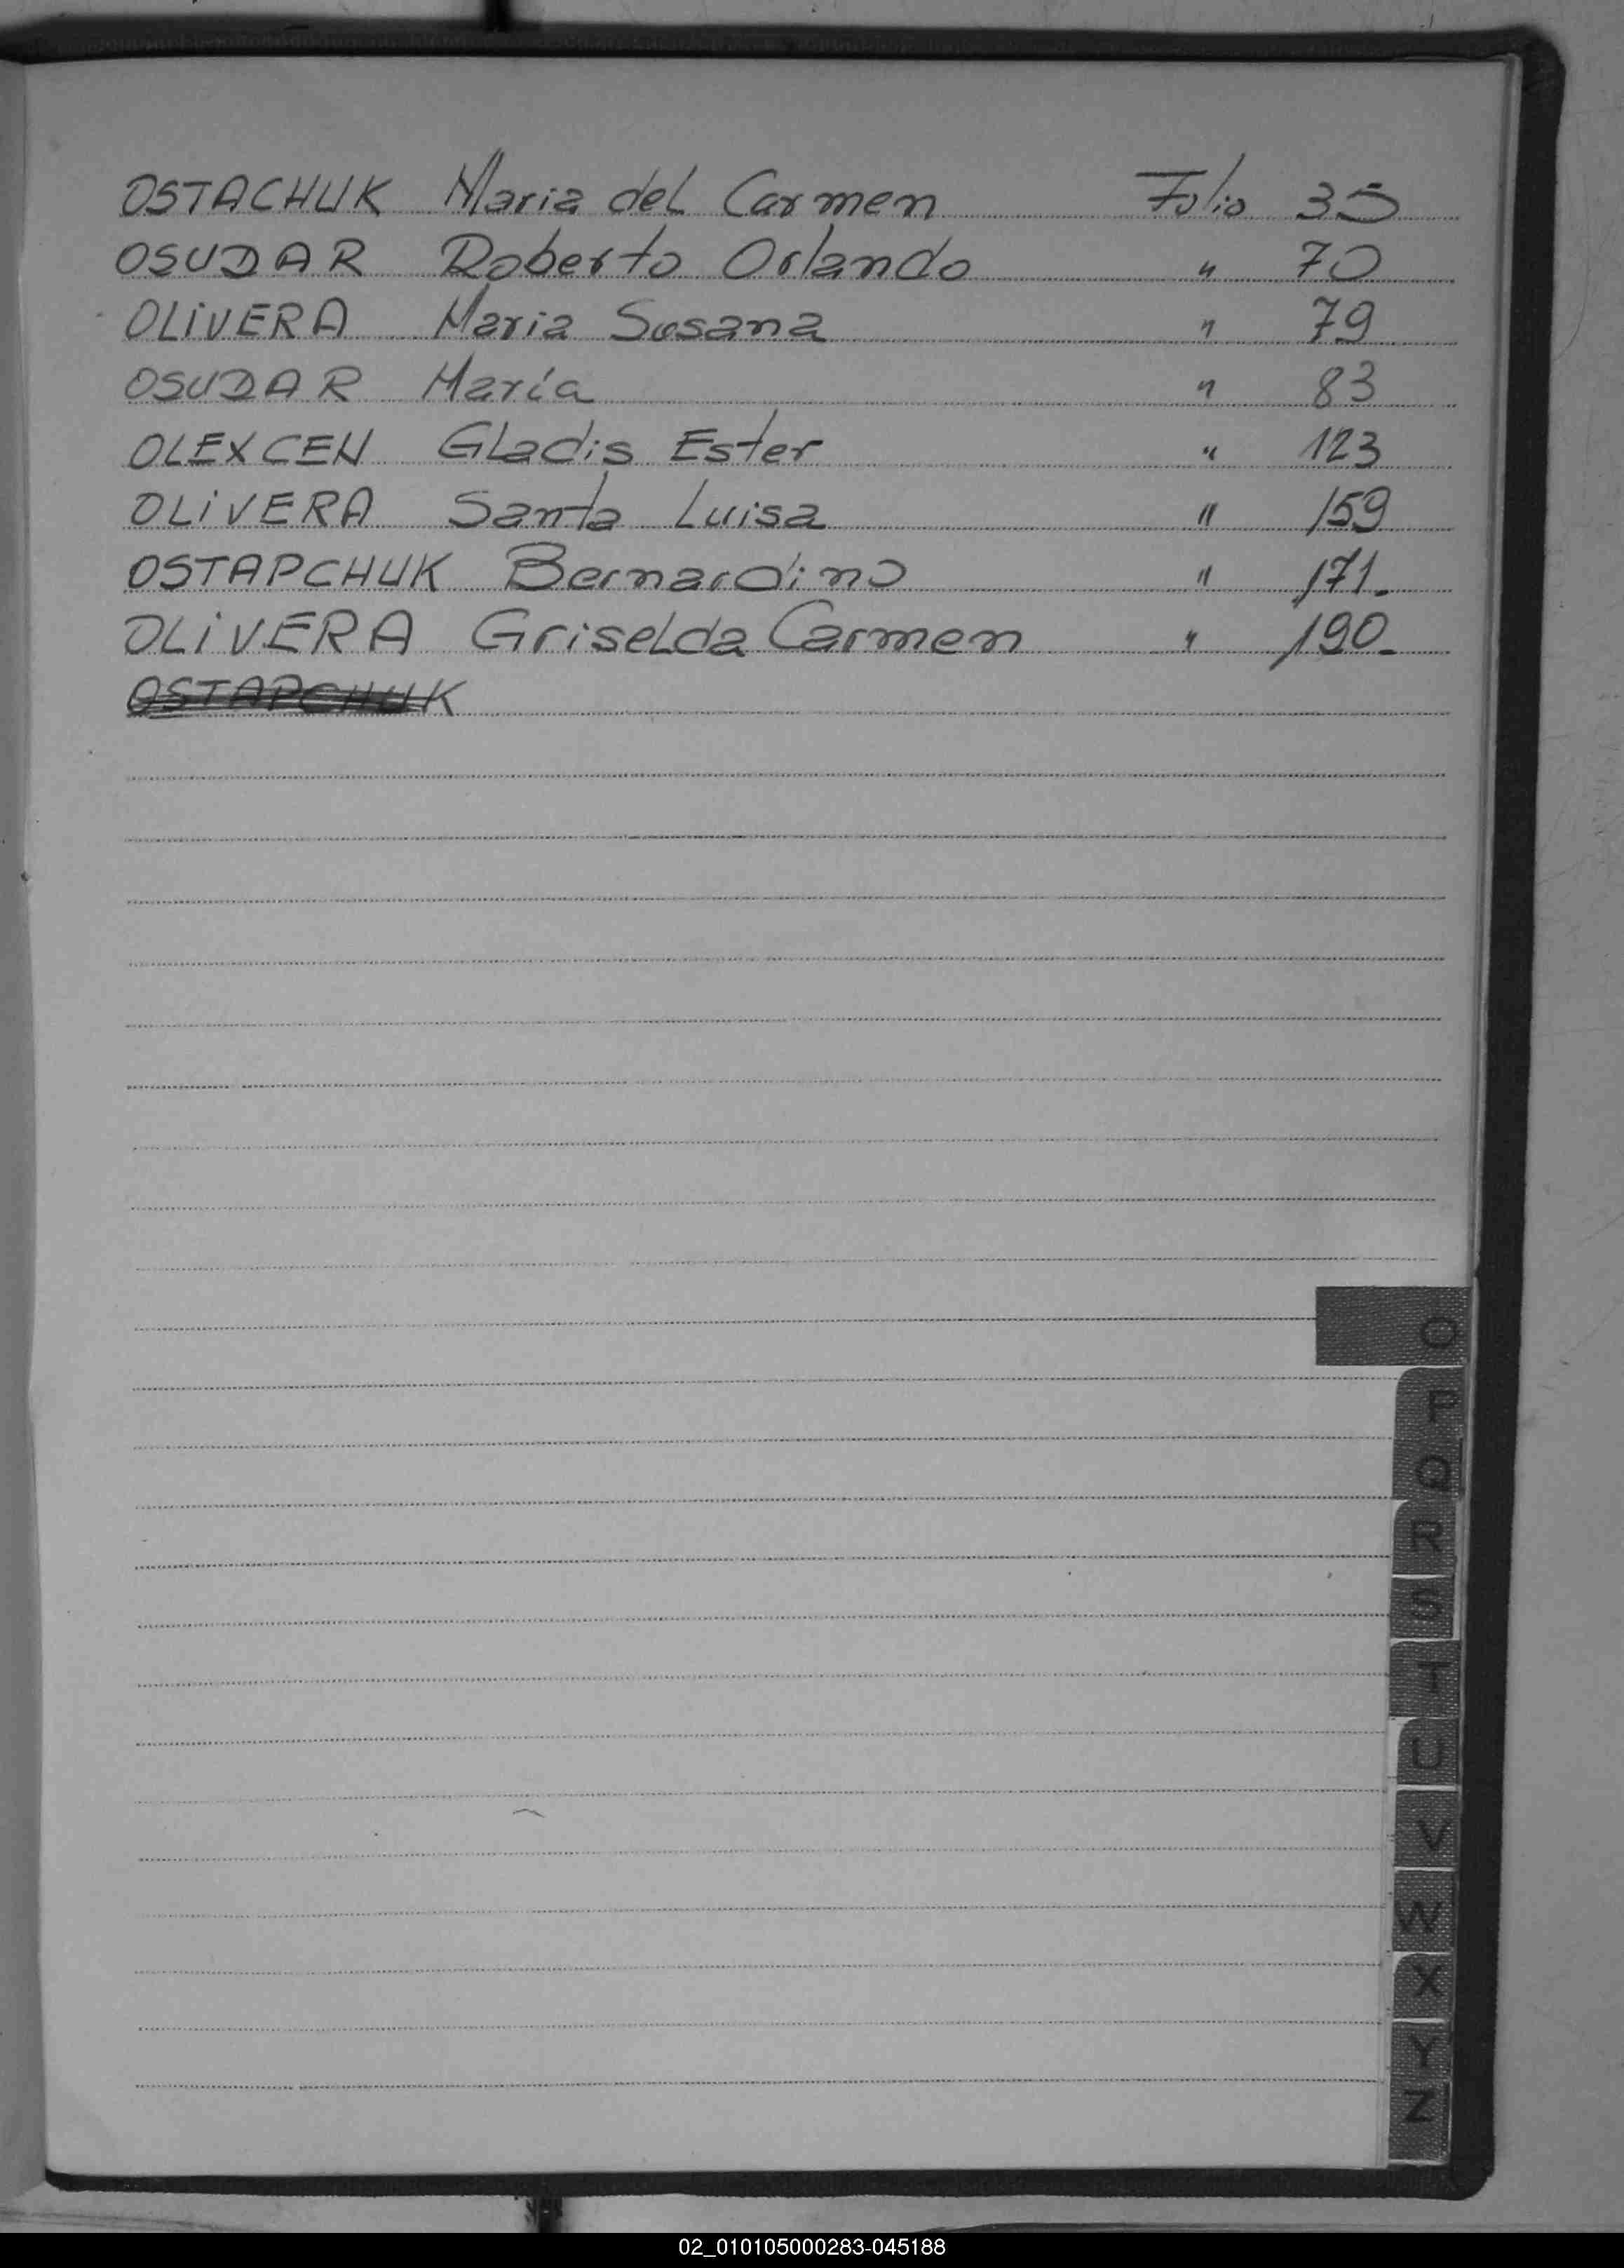 OSTACHUK Maria del Carmen Folio 35
OSUDAR Roberto Orlando " 70
OLIVERA Maria Susana " 79
OSUDAR María " 83
OLEXCEN Gladis Ester " 123
OLIVERA Santa Luisa " 159
OSTAPCHUK Bernardino " 171.
OLIVERA Griselda Carmen " 190.
OSTAPCHUK
O
P
Q
R
S
T
U
V
W
X
Y
Z
02_010105000283-045188